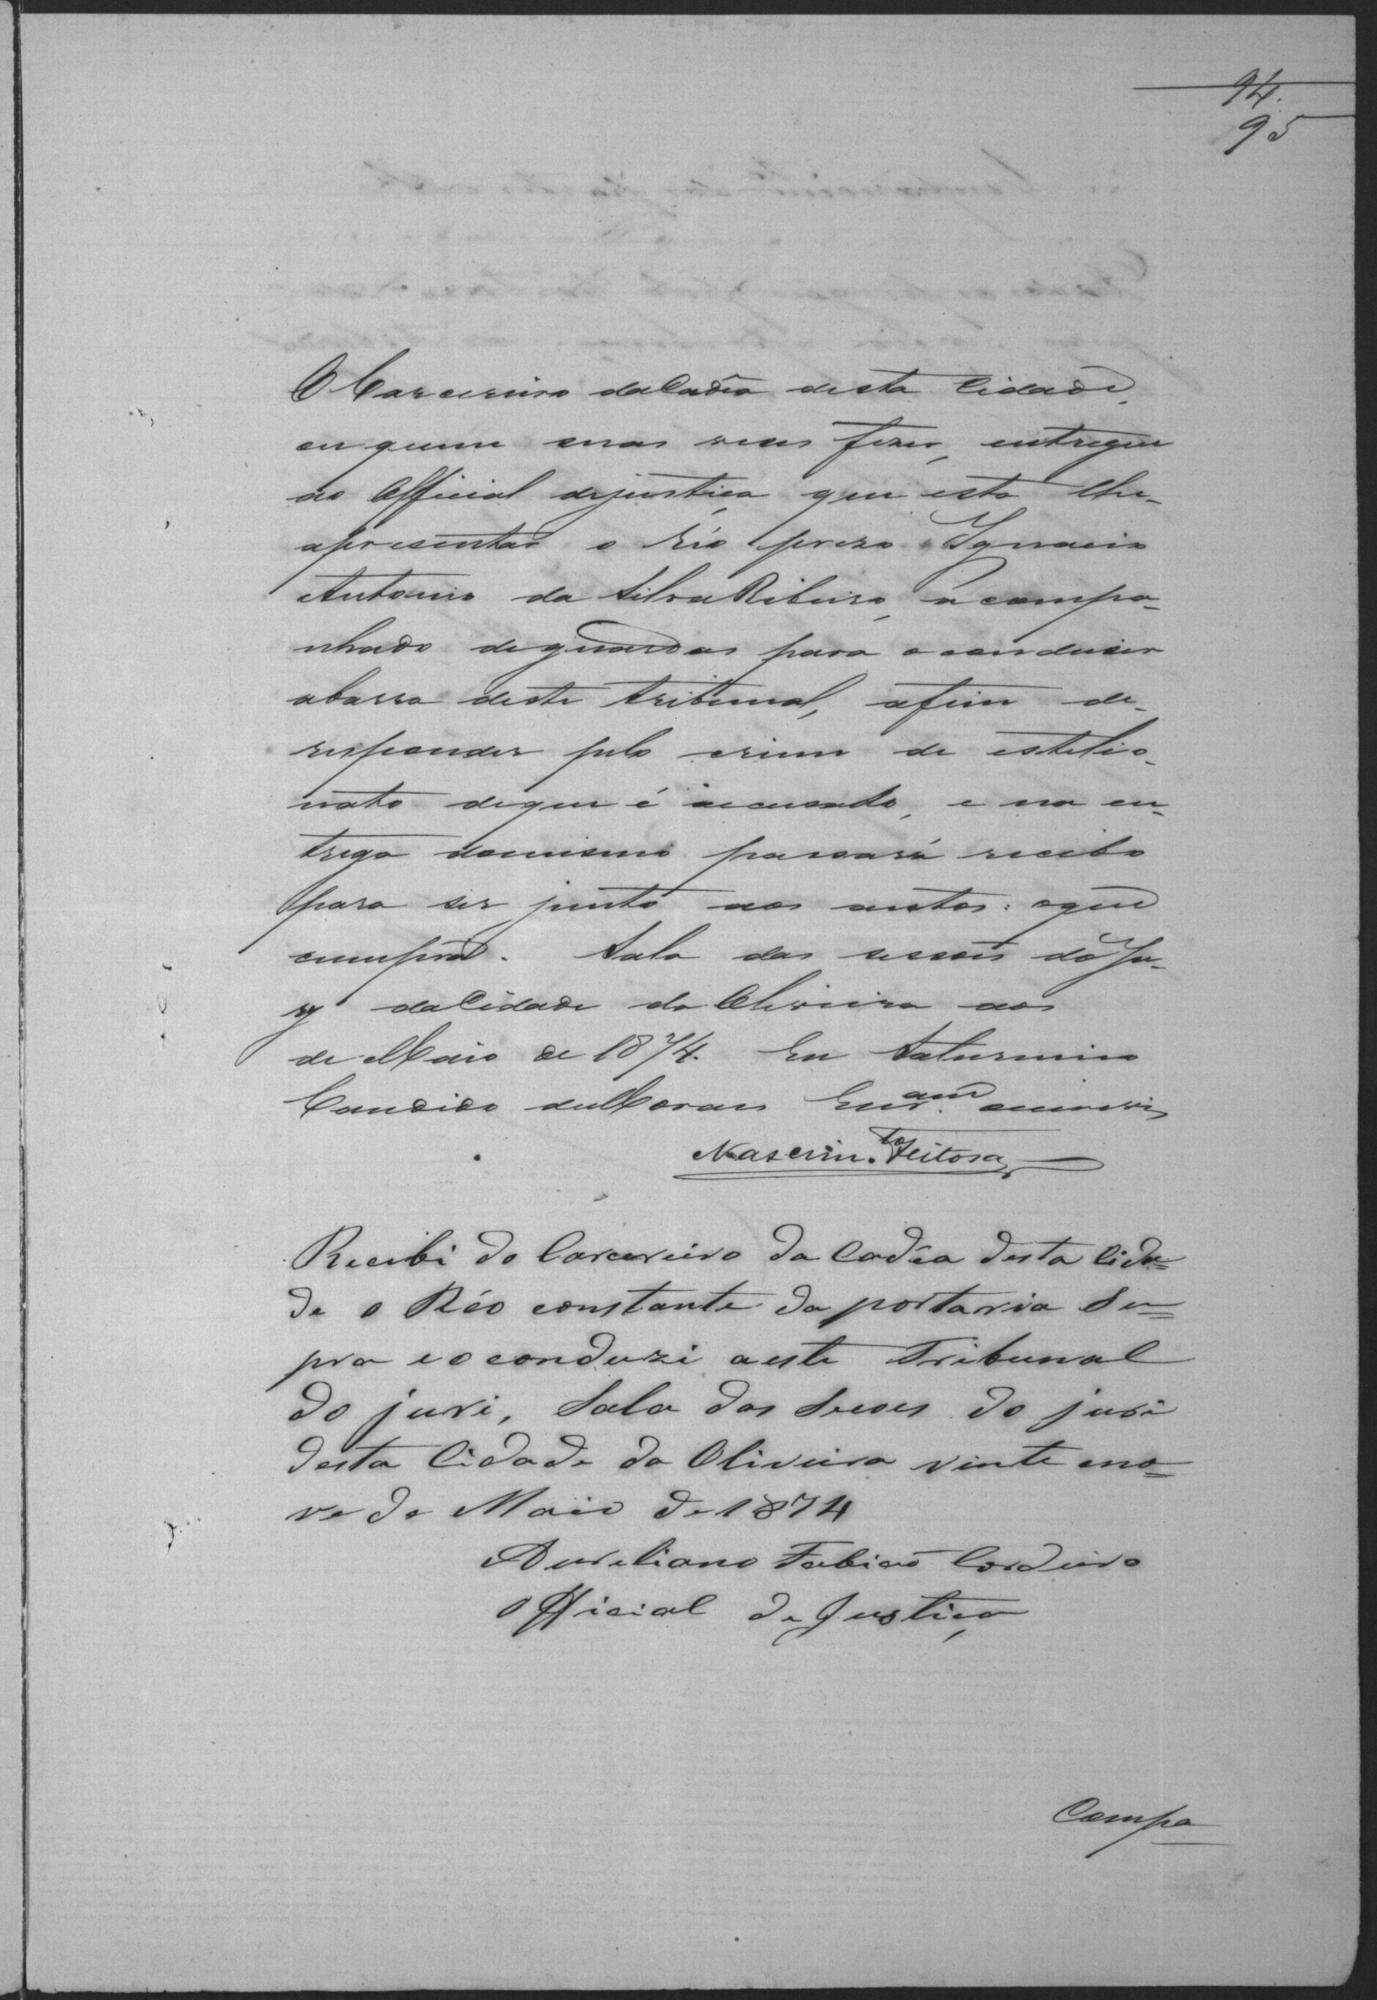 94.
95
O Carcereiro da Cadêa desta Cidade,
ou quem suas veses fizer, entregue
ao Official dejustiça que esta lhe-
apresentar o Réo prezo Ignacio
Antonio da Silva Ribeiro, acompa-
nhado deguardas para oconduzir
abarra deste tribunal, afim de-
responder pelo crime de estelio-
nato deque é accusado, e na en-
trega domesmo passará recibo
para ser junto aos autos: oque
cumpra. Sala das sessoẽs do Ju-
ry da Cidade da Oliveira aos
de Maio de 1874. Eu Saturnino
Candido de Moraes Escr.am oescrevi
Nascim.to Feitosa
Recibi do Carcereiro da Cadêa desta Cida=
de o Réo constante da portaria Su=
pra e o conduzi a este Tribunal
do juri, Sala das Secoes do juri
desta Cidade da Oliveira vinte eno=
ve de Maio de 1874
Aureliano Fabiaõ Cordeiro
Official de Justiça
Compa